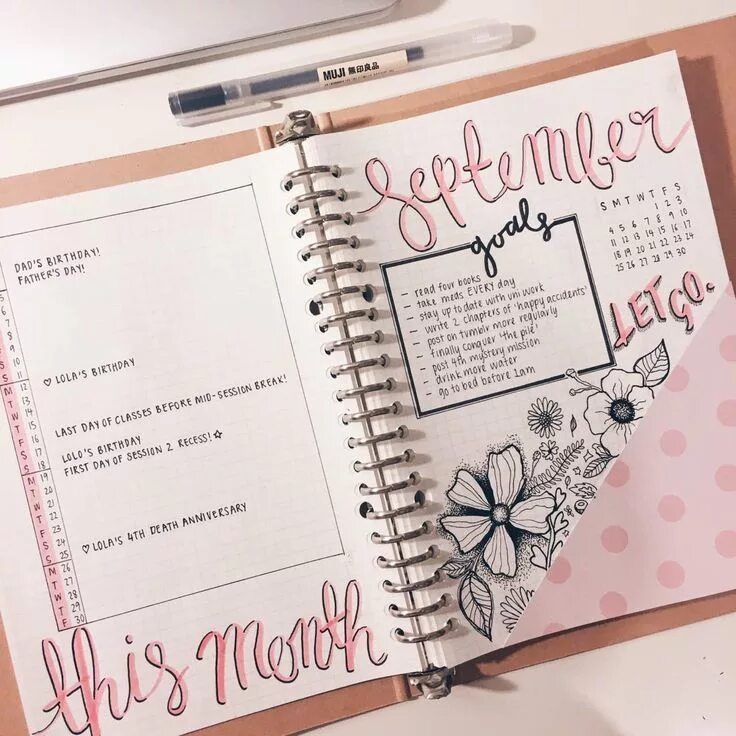 MUJI 無印良品
DAD'S BIRTHDAY!
FATHER'S DAY!
5
6
7
8
9
S 10
S 11
M 12
T 13
♡ LOLA'S BIRTHDAY
W 14
T 15
F 16
LAST DAY OF CLASSES BEFORE MID-SESSION BREAK!
S 17
LOLO'S BIRTHDAY
S 18
FIRST DAY OF SESSION 2 RECESS! ☆
M 19
T 20
W 21
T 22
F 23
S 24
S 25
♡ LOLA'S 4TH DEATH ANNIVERSARY
M 26
T 27
W 28
T 29
F 30
this month
September
S M T W T F S
1 2 3
4 5 6 7 8 9 10
11 12 13 14 15 16 17
18 19 20 21 22 23 24
25 26 27 28 29 30
goals
– read four books
– take meds EVERY day
– stay up to date with uni work
– write 2 chapters of 'happy accidents'
– post on tumblr more regularly
– finally conquer 'the pile'
– post 4th mystery mission
– drink more water
– go to bed before 1am
LET GO.